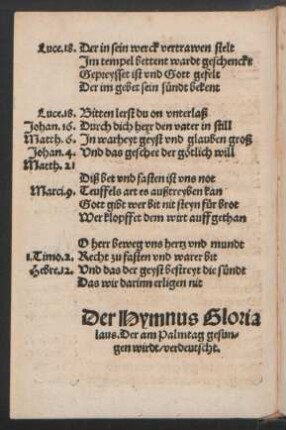 Luce.18. Der in sein werck vertrawen stelt
Im tempel bettent wardt geschenckt
Gepreysset ist vnd Gott gefelt
Der im gebet sein sündt bekent
Luce.18. Bitten lerst du on vnterlaß
Johan.16. Durch dich herr den vater in still
Matth.6. In warheyt geyst vnd glauben groß
Johan.4. Vnd das geschee der götlich will
Matth.21
Diß bet vnd fasten ist vns not
Marci.9. Teuffels art es außtreyben kan
Gott gibt wer bit nit steyn für brot
Wer klopffet dem wirt auff gethan
O herr beweg vns hertz vnd mundt
1.Timo.2. Recht zu fasten vnd warer bit
Hebre.12. Vnd das der geyst bestreyt die sündt
Das wir darinn erligen nit
Der Hymnus Gloria
laus. Der am Palmtag gesun-
gen wirdt/verdeutscht.